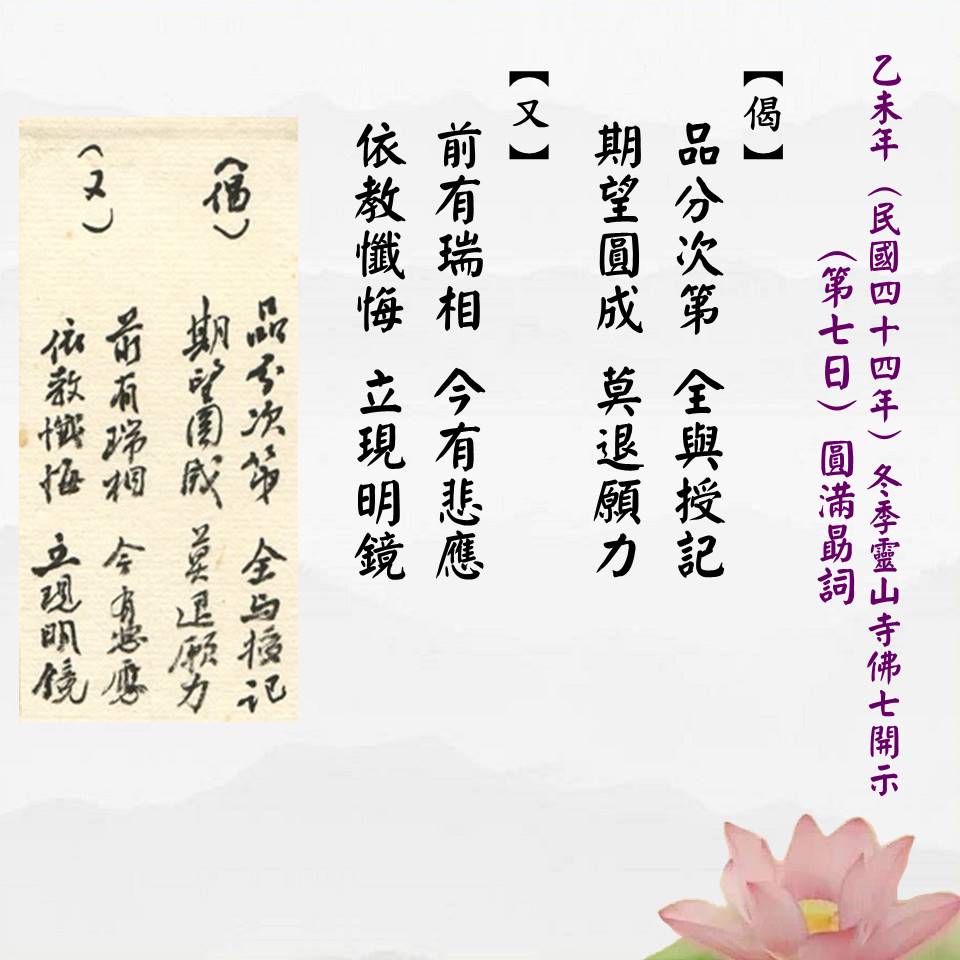 乙未年（民國四十四年）冬季靈山寺佛七開示
（第七日）圓滿勗詞
【偈】
品分次第 全與授記
期望圓成 莫退願力
【又】
前有瑞相 今有悲應
依教懺悔 立現明鏡
（偈）
品分次第 全与授记
期望圓成 莫退願力
（又）
前有瑞相 今有悲應
依教懺悔 立現明鏡